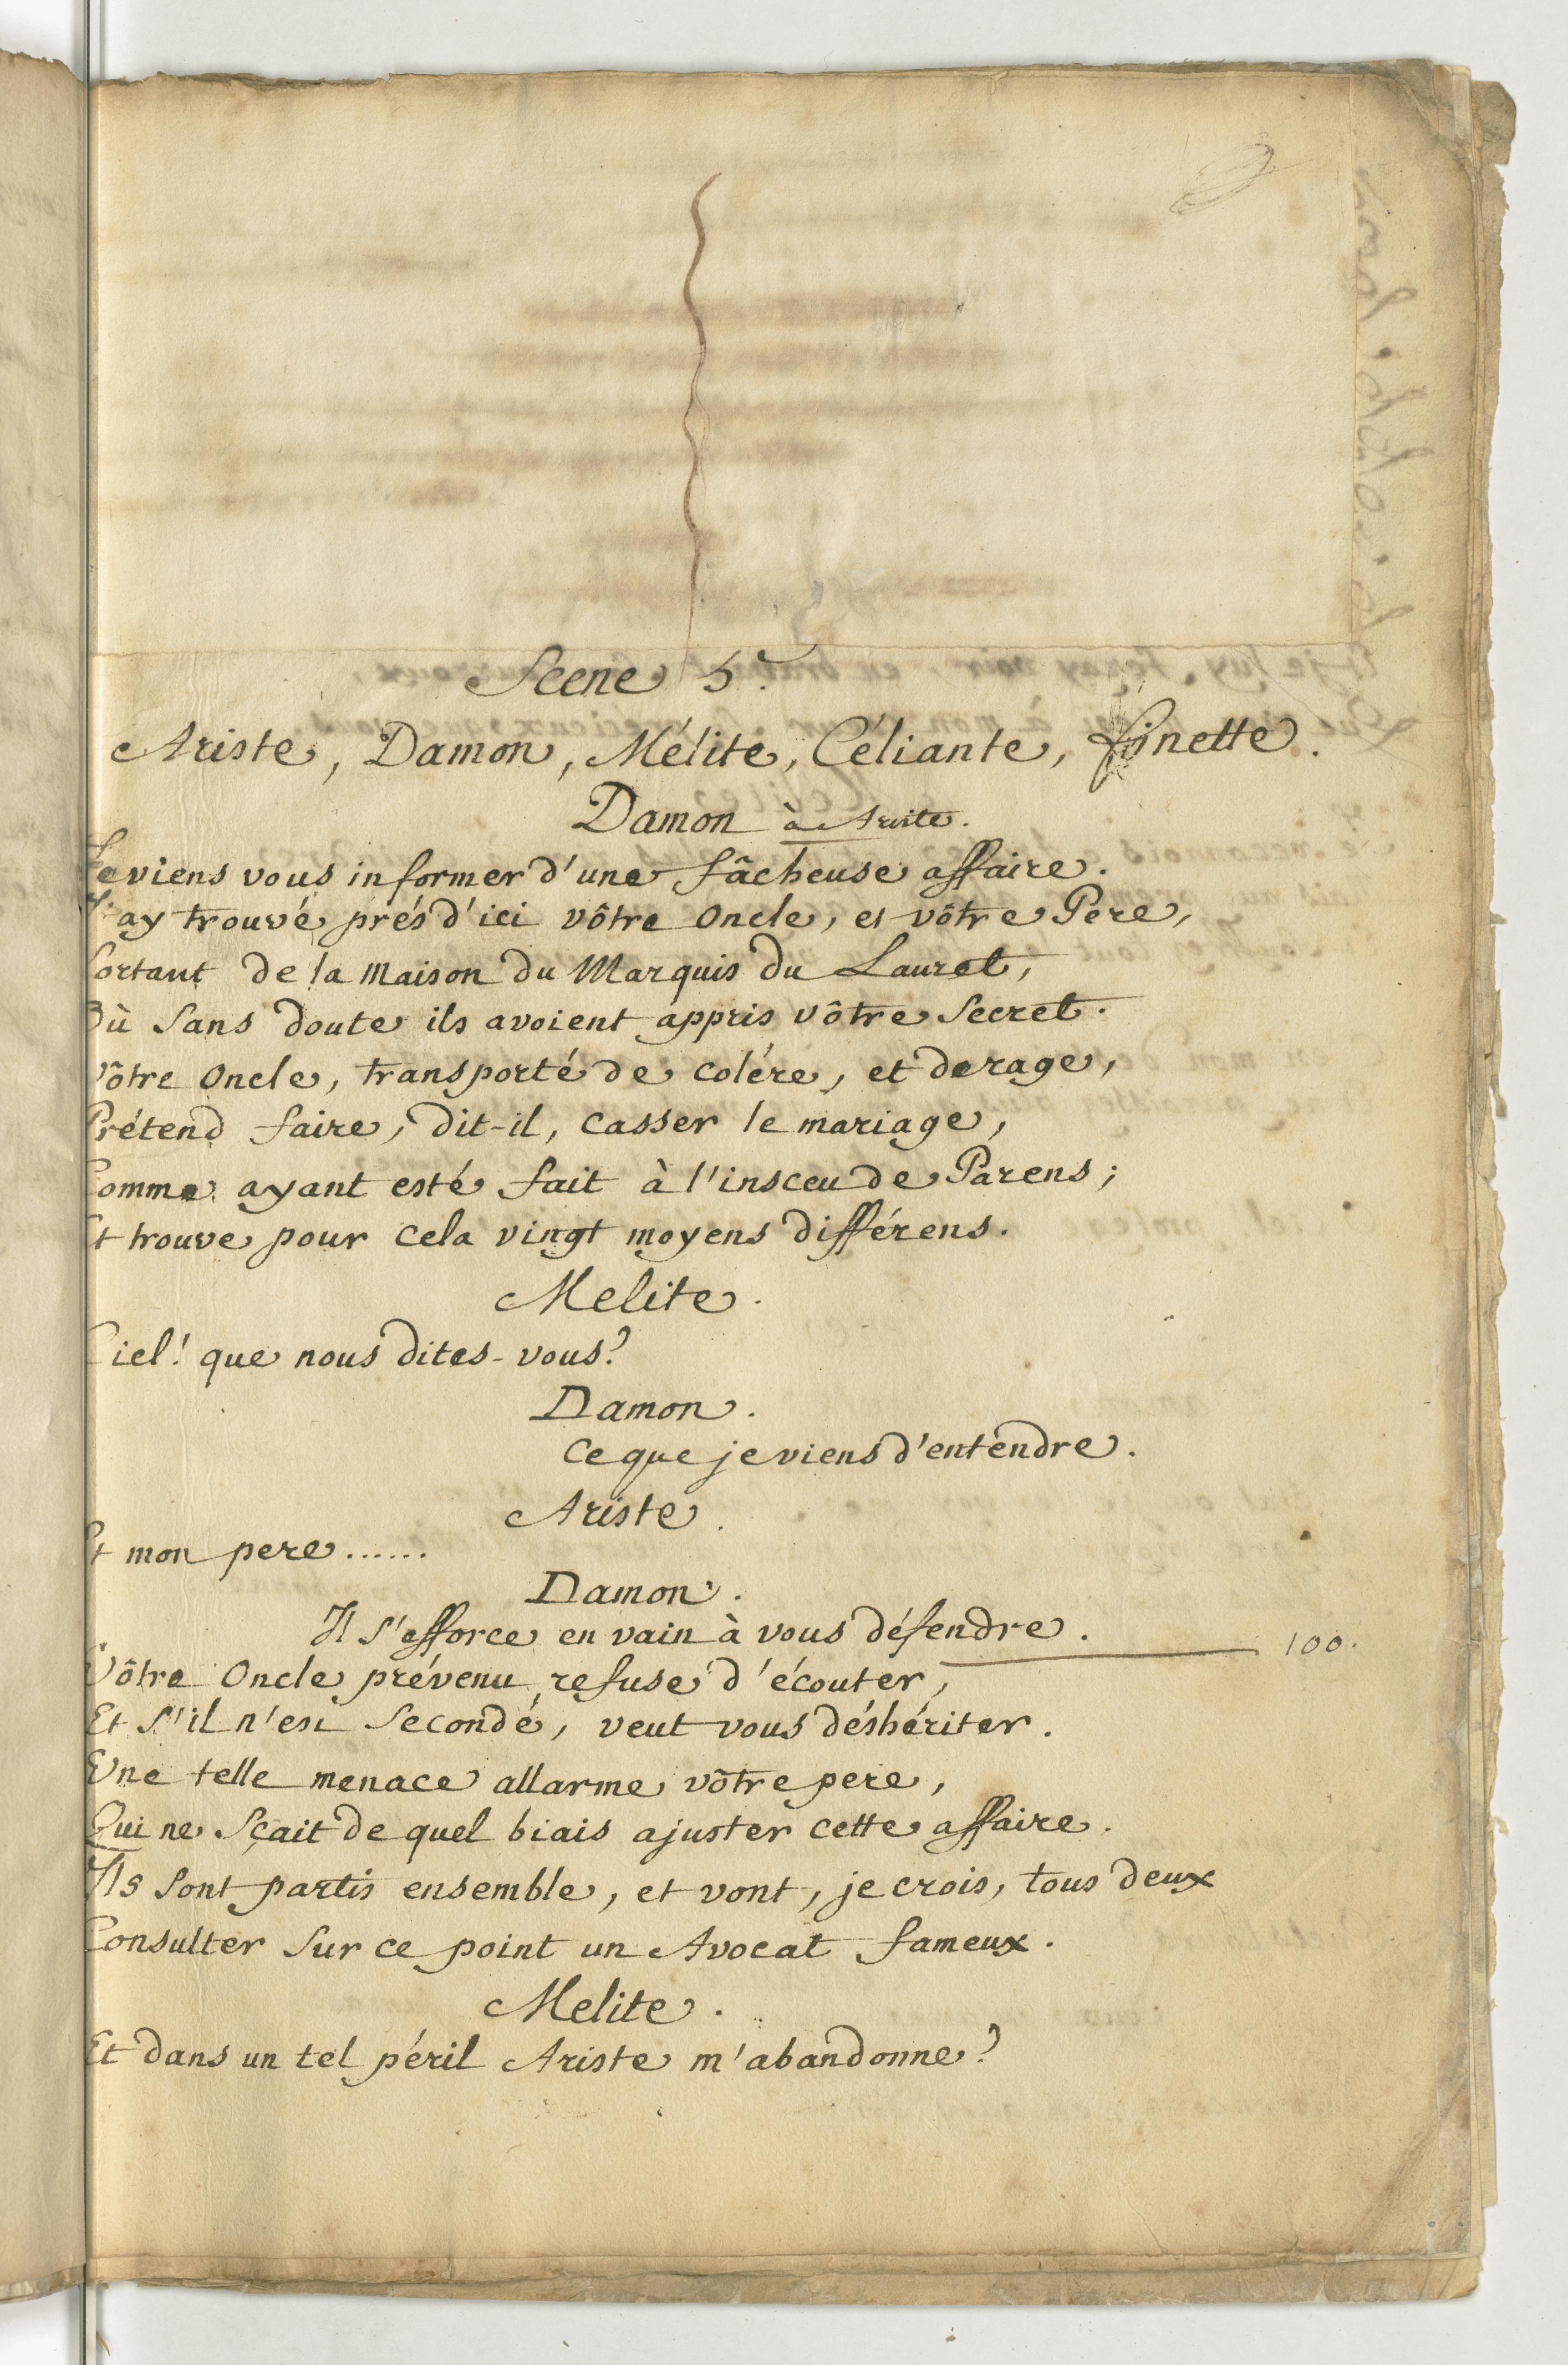 Scene 5.e
Ariste, Damon, Mélite, Céliante, finette.
Damon à Ariste.
Je viens vous informer d'une fâcheuse affaire.
J'ay trouvé prés d'ici vôtre Oncle, et vôtre Pere,
Sortant de la Maison du Marquis du Lauret,
Où sans doute ils avoient appris vôtre Secret.
Vôtre Oncle, transporté de colére, et de rage,
Prétend faire, dit-il, casser le mariage,
Comme ayant esté fait à l'insceu de Parens;
Et trouve pour cela vingt moyens différens.
Melite.
Ciel! que nous dites-vous?
Damon.
Ce que je viens d'entendre.
Ariste.
Et mon pere......
Damon.
Il s'efforce en vain à vous défendre. 100.
Vôtre Oncle prévenu, refuse d'écouter,
Et s'il n'est Secondé, veut vous déshériter.
Une telle menace allarme vôtre pere,
Qui ne Sçait de quel biais ajuster cette affaire.
Ils sont partis ensemble, et vont, je crois, tous deux
Consulter Sur ce point un Avocat fameux.
Melite.
Et dans un tel péril Ariste m'abandonne?